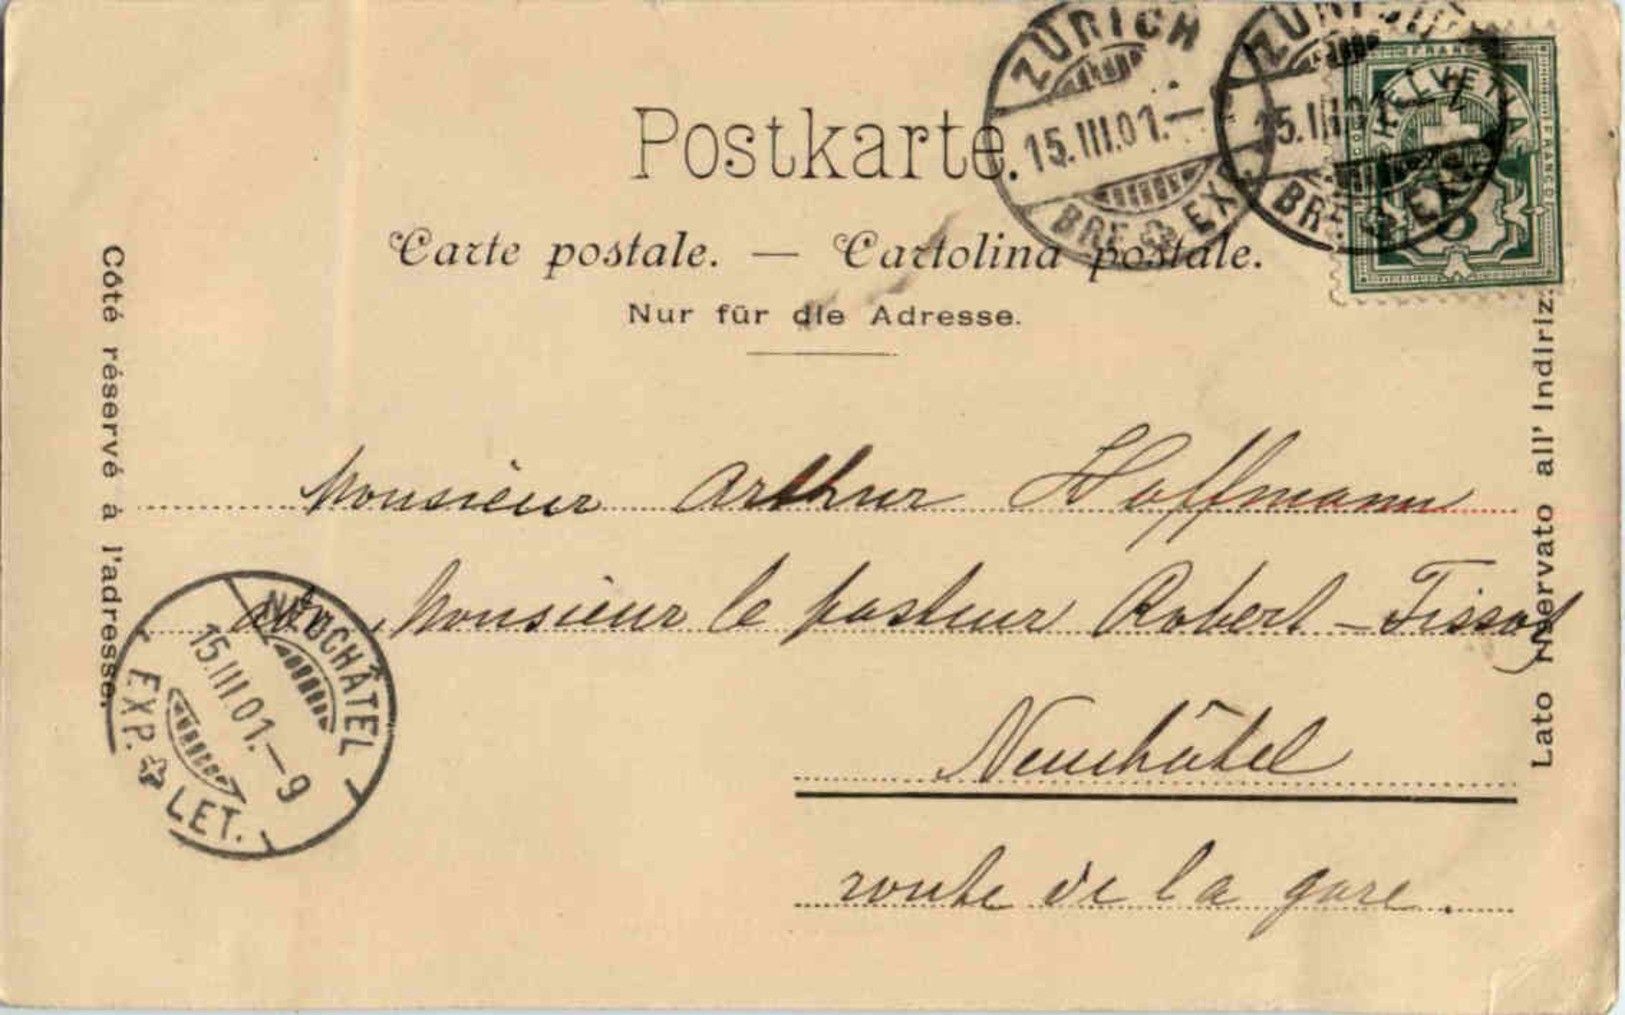 Postkarte.
Carte postale. — Cartolina postale.
Nur für die Adresse.
Côté réservé à l'adresse.
Lato riservato all' Indiriz.
ZÜRICH
15.III.01.—
BRF. EXP.
ZÜRICH
15.III.01.—7
BRF. EXP.
FRANCO
HELVETIA
FRANCO
5
Monsieur Arthur Hoffmann
Monsieur le pasteur Robert-Tissot
Neuchâtel
route de la gare.
NEUCHÂTEL
15.III.01.—9
EXP. LET.